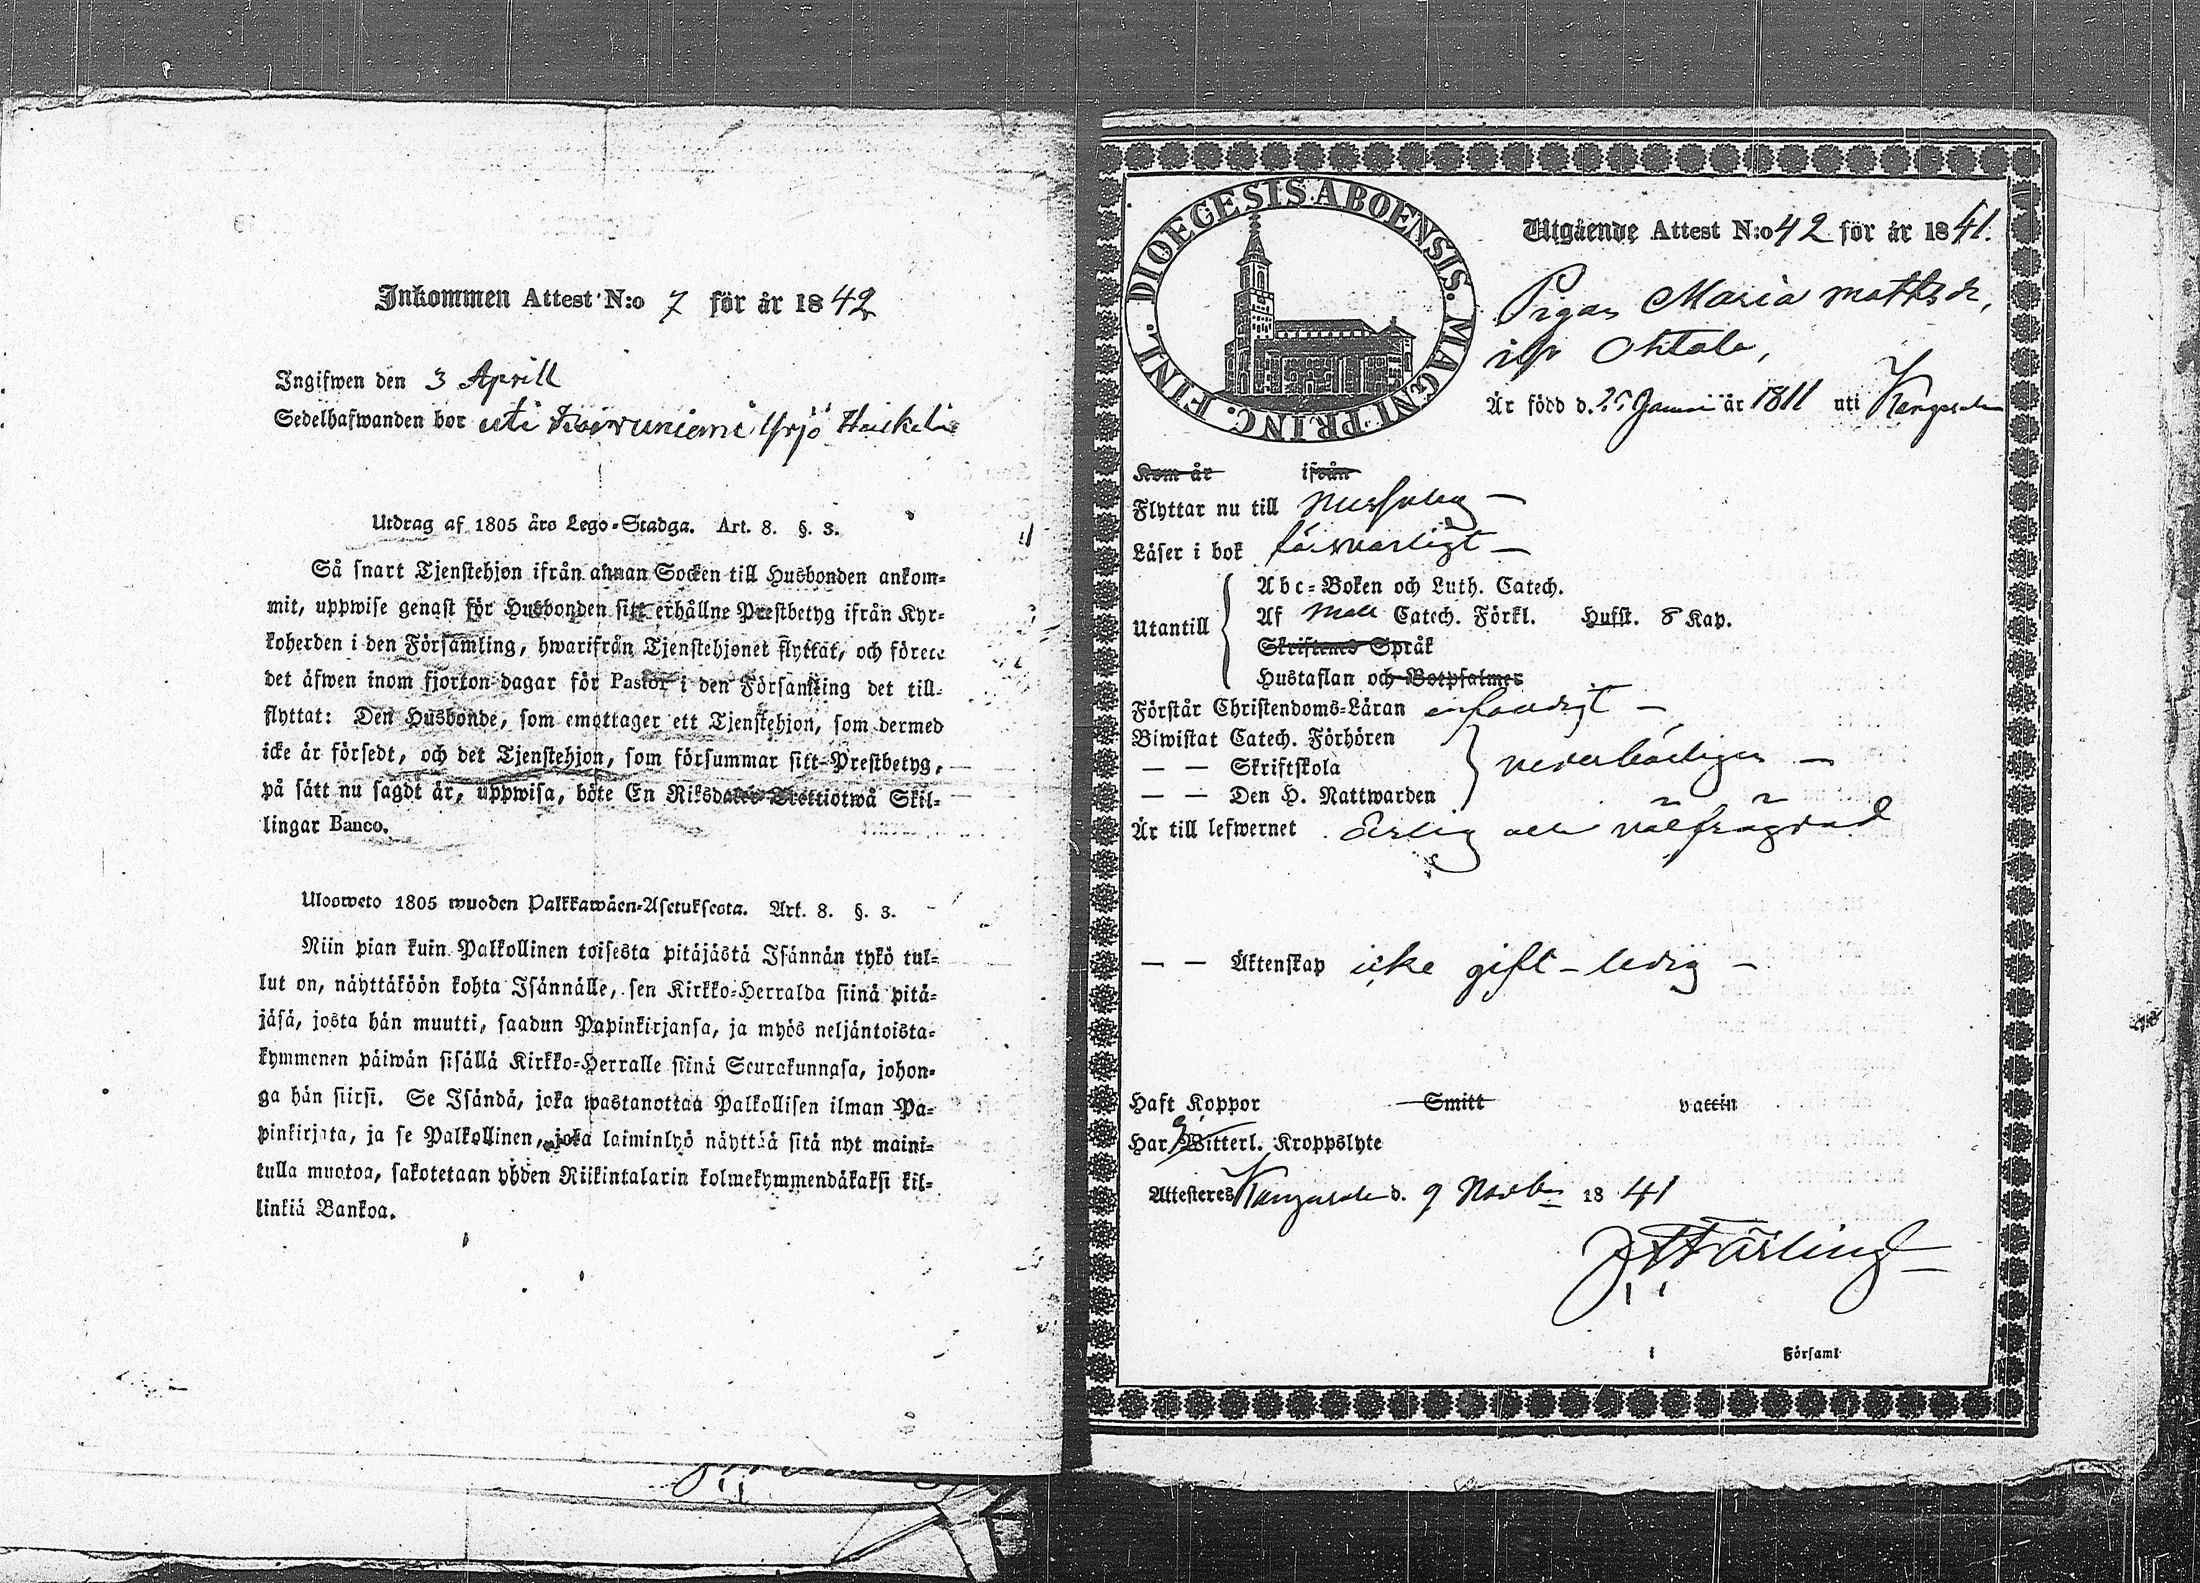 Inkommen Attest N:o 7 för år 1842
Ingifwen den 3 Aprill
Sedelhafwanden bor uti Yrjö Heikkilä
Utdrag af 1805 års Lego-Stadga. Art. 8. §. 3.
Så snart Tjenstehjon ifrån annan Socken till Husbonden ankom-
mit, uppwise genast för Husbonden sitt erhållne Prestbetyg ifrån Kyr-
koherden i den Församling, hwarifrån Tjenstehjonet flyttat, och förete
det äfwen inom fjorton dagar för Pastor i den Församling det till-
flyttat: Den Husbonde, som emottager ett Tjenstehjon, som dermed
icke är försedt, och det Tjenstehjon, som försummar sitt Prestbetyg,
på sätt nu sagdt är, uppwisa, böte En Riksdaler Trettiotwå Skil-
lingar Banco.
Ulosweto 1805 wuoden Palkkawäen-Asetuksesta. Art. 8. §. 3.
Niin pian kuin Palkollinen toisesta pitäjästä Isännän tykö tul-
lut on, näyttäköön kohta Isännälle, sen Kirkko-Herralda siinä pitä-
jäsä, josta hän muutti, saadun Papinkirjansa, ja myös neljäntoista-
kymmenen päiwän sisällä Kirkko-Herralle siinä Seurakunnasa, johon-
ga hän siirsi. Se Isändä, joka wastanottaa Palkollisen ilman Pa-
pinkirjata, ja se Palkollinen, joka laiminlyö näyttää sitä nyt maini-
tulla muotoa, sakotetaan yhden Riikintalarin kolmekymmendäkaksi kil-
linkiä Bankoa.
DIOECESIS ABOENSIS. MAGNI PRINC. FINL.
Utgående Attest N:o 42 för år 1841.
Pigan Maria Mattsdr,
ifr Ohtola,
Är född d. 25 Januari år 1811 uti Kangasala
Kom år ifrån
Flyttar nu till Messuby
Läser i bok försvarligt
Abc-Boken och Luth. Catech.
Utantill Af Catech. Förkl. Hufst. 8 Kap.
Skriftenes Språk
Hustaflan och Botpsalmer
Förstår Christendoms-Läran
Biwistat Catech. Förhören
— — Skriftskola vederbörligen
— — Den H. Nattwarden
Är till lefwernet Ärlig och välfrägdad
— — Äktenskap icke gift - ledig
Haft Koppor Smitt vaccin
Har Witterl. Kroppslyte
Attesteres Kangasala d. 9 Novbr 1841
i Församl